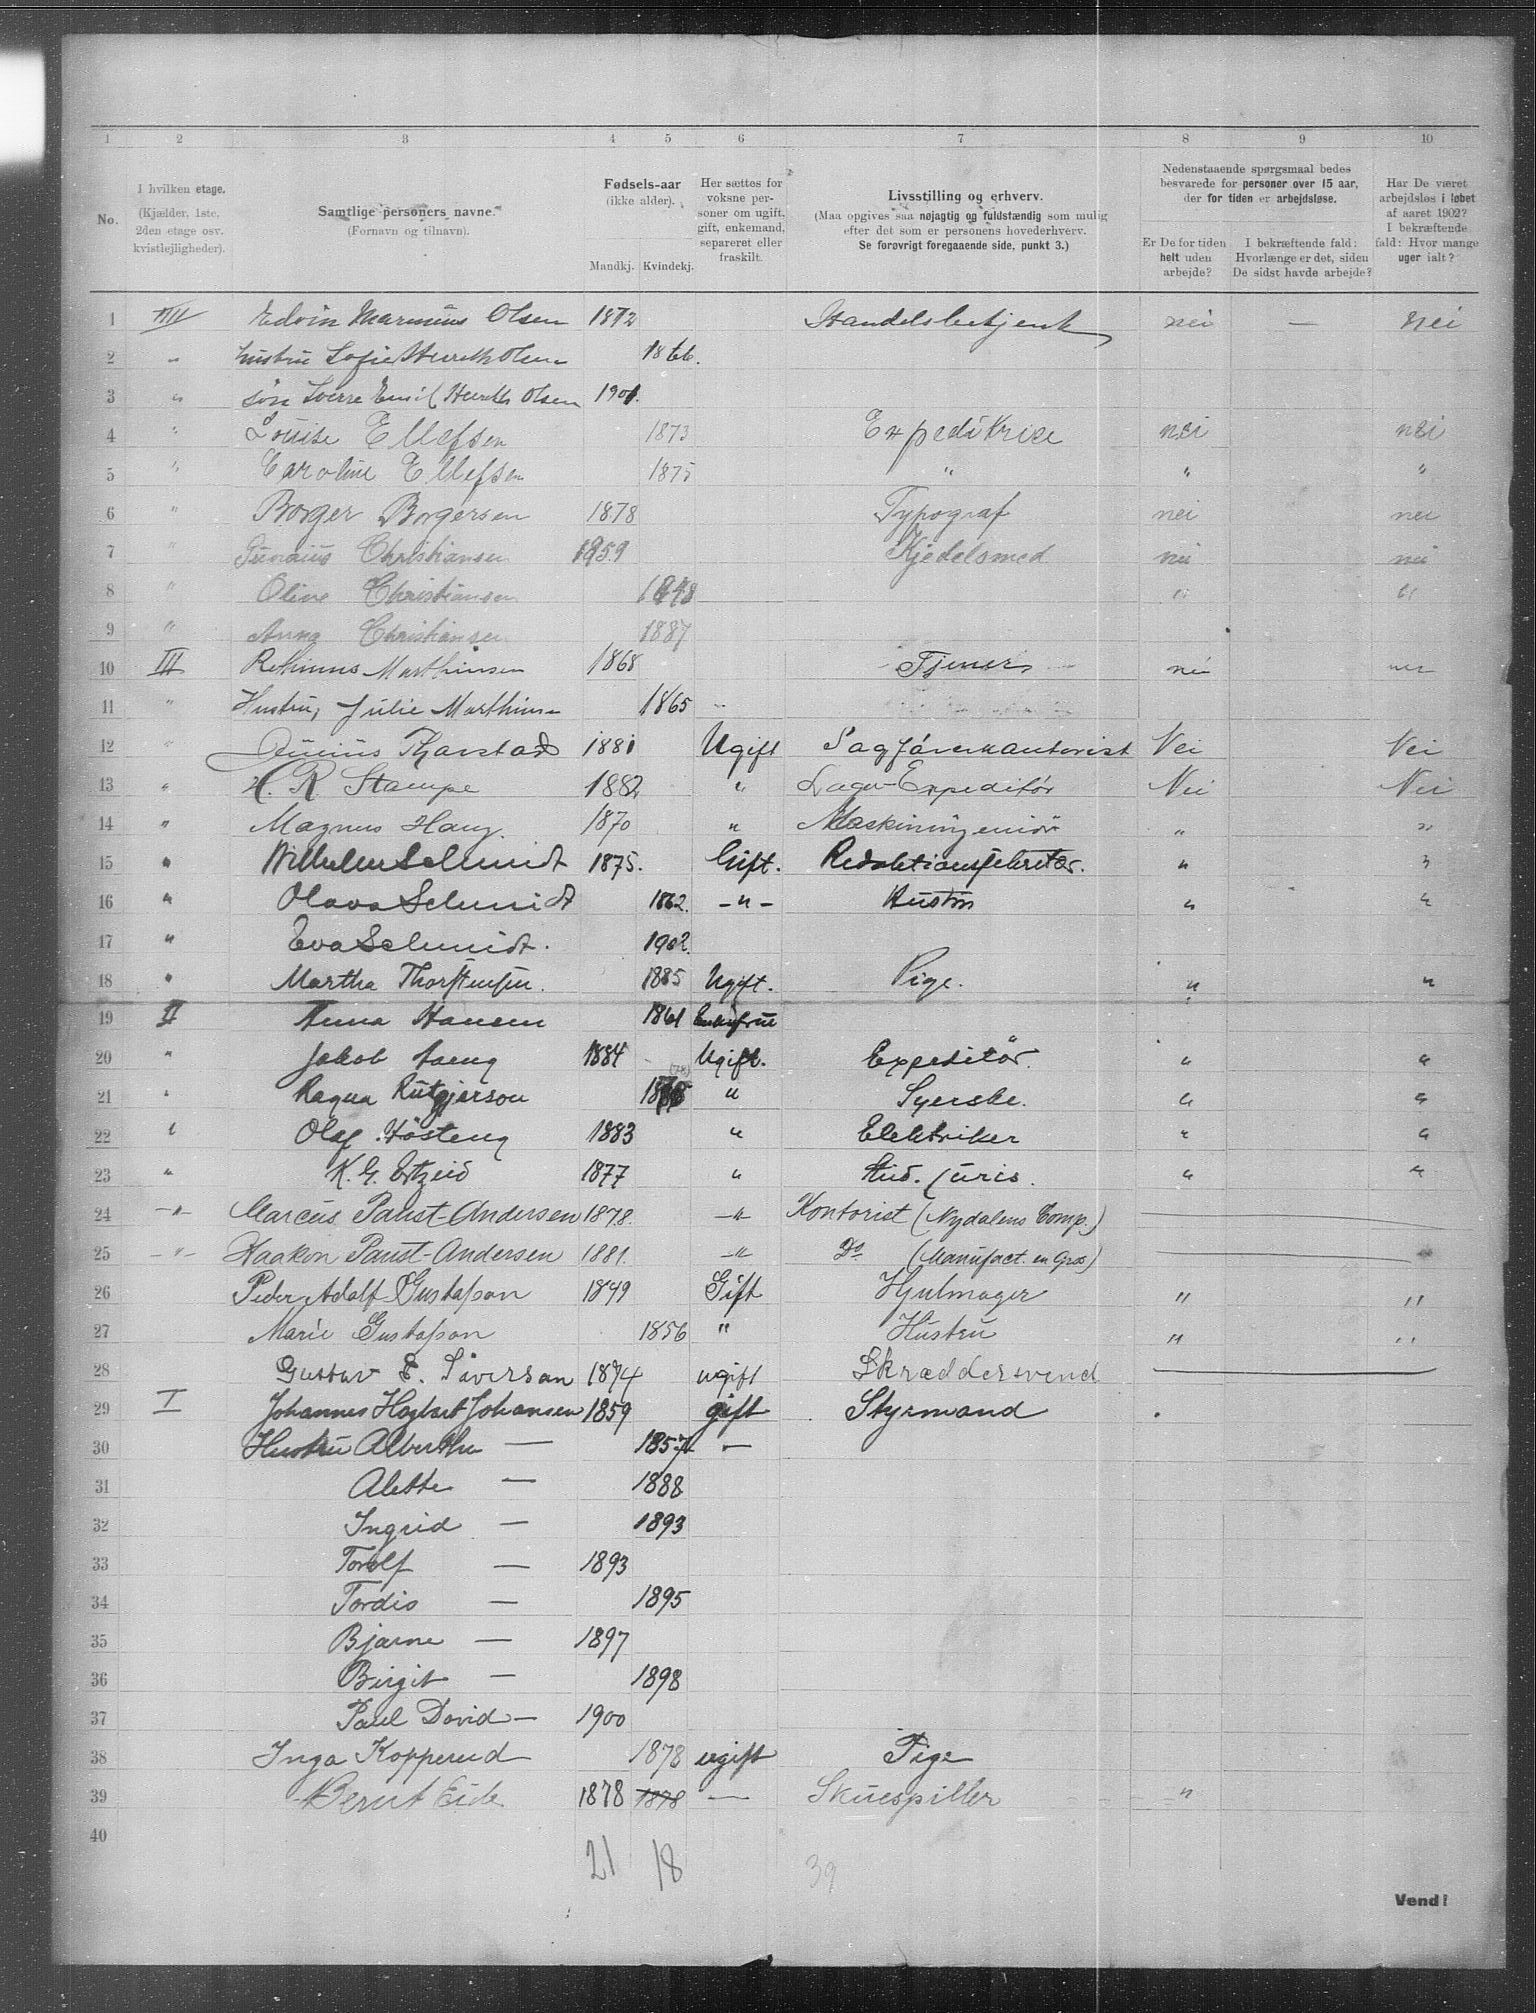 1 2 3 4 5 6 7 8 9 10
No.
I hvilken etage.
(Kjælder, 1ste,
2den etage osv.
kvistlejligheder).
Samtlige personers navne.
(Fornavn og tilnavn).
Fødsels-aar
(ikke alder).
Mandkj. Kvindekj.
Her sættes for
voksne per-
soner om ugift,
gift, enkemand,
separeret eller
fraskilt.
Livsstilling og erhverv.
(Maa opgives saa nøjagtig og fuldstændig som mulig
efter det som er personens hovederhverv.
Se forøvrigt foregaaende side, punkt 3.)
Nedenstaaende spørgsmaal bedes
besvarede for personer over 15 aar,
der for tiden er arbejdsløse.
Er De for tiden
helt uden
arbejde?
I bekræftende fald:
Hvorlænge er det, siden
De sidst havde arbejde?
Har De været
arbejdsløs i løbet
af aaret 1902?
I bekræftende
fald: Hvor mange
uger ialt?
1 IIII Edvin Marinius Olsen 1872 Handelsbetjent nei — nei
2 " hustru Sofie Olsen 1866.
3 " søn Sverre Emil Olsen 1901.
4 " Louise Ellefsen 1873 Expeditrice nei nei
5 " Caroline Ellefsen 1875 " " "
6 " Borger Borgersen 1878 Typograf nei nei
7 " Christiansen 1859 Kjedelsmed nei nei
8 " Oline Christiansen 1848 " "
9 " Anna Christiansen 1887
10 III Marthinsen 1868 Tjener nei nei
11 " Hustru, Julie Marthinsen 1865 "
12 " Junius Tjerstad 1881 Ugift Sagførerkantorist Nei Nei
13 " H. R. Stampe 1882 " Lager-Expeditör Nei Nei
14 " Magnus Haug. 1870 " Maskiningeniör " "
15 " Wilhelm Schmidt 1875. Gift. Redaktionssekretær. " "
16 " Olava Schmidt 1862. -"- Hustru " "
17 " Eva Schmidt. 1902.
18 " Martha Thorstensen. 1885 Ugift. Pige. " "
19 II Anna Hansen 1861 Enkefrue
20 " Jakob 1884 Ugift. Expeditör. " "
21 " Ragna Rutgerson (78) " Syerske. " "
22 " Olaf Høsteng 1883 " Elektriker " "
23 " K. G. 1877 " Stud. juris. " "
24 -"- Marcus Paust-Andersen 1878. -"- Kontorist (Nydalens Comp.)
25 -"- Haakon Paust-Andersen 1881. -"- Do (Manufact. en Gros)
26 Peder Adolf Gustafson 1849 Gift Hjulmager " "
27 Marie Gustafson 1856 " Hustru " "
28 Gustav E. Siverson 1874 ugift Skræddersvend
29 I Johannes Hagbart Johansen 1859 gift Styrmand
30 Hustru Alberthe — 1857 —
31 Alette — 1888
32 Ingrid — 1893
33 Torolf — 1893
34 Tordis — 1895
35 Bjarne — 1897
36 Birgit — 1898
37 Paul David — 1900
38 Inga Kopperud 1878 ugift Pige
39 Bernt Eide 1878 1878 — Skuespiller "
40
21 18 39
Vend!